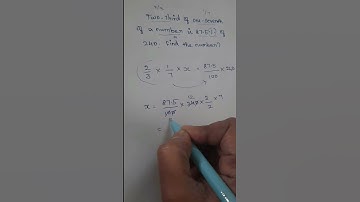 Two-third of one-seventh
of a number is 87.5% of
240. Find the number?
2/3 × 1/7 × x = 87.5/100 × 240
x = 87.5/100 × 240 × 3/2 × 7
=